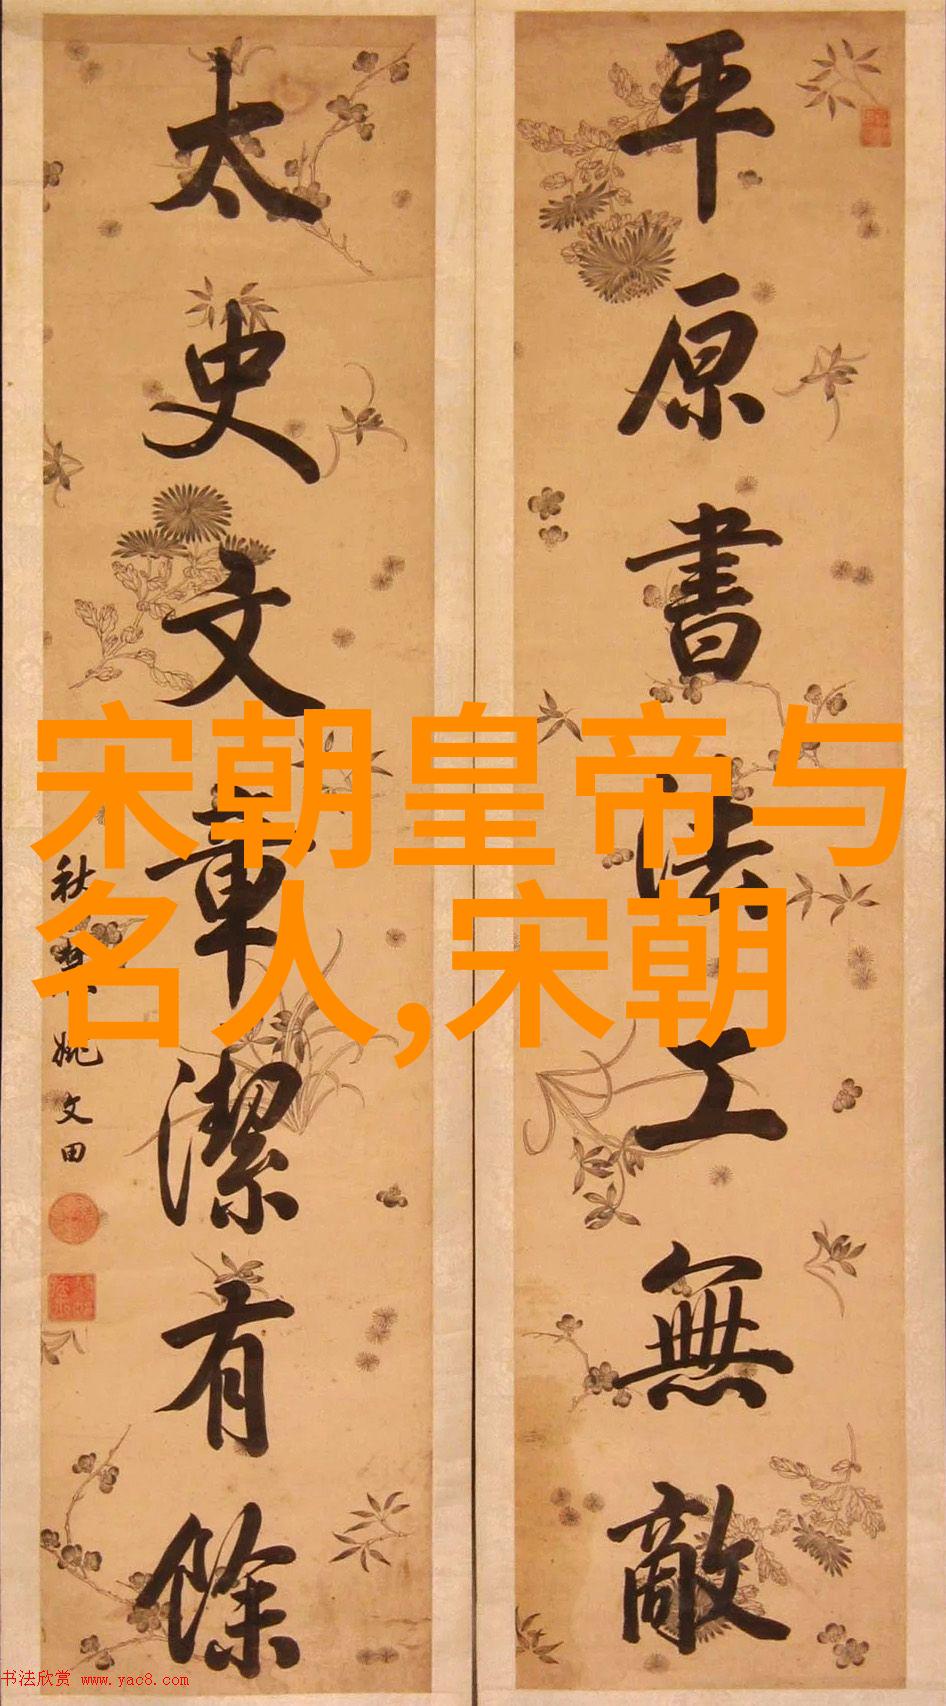 平原書法工無敵
太史文章潔有餘
秋
姚文田
宋朝皇帝与
名人,宋朝
书法欣赏 www.yac8.com